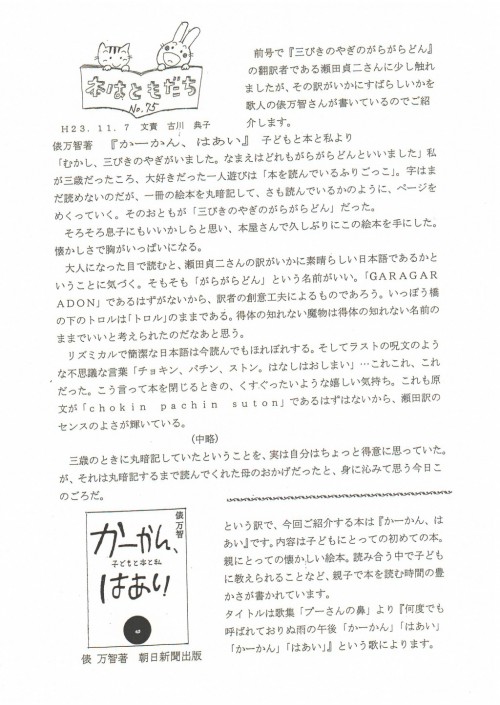 本はともだち
No.75
H23.11.7 文責 古川 典子
前号で『三びきのやぎのがらがらどん』
の翻訳者である瀬田貞二さんに少し触れ
ましたが、その訳がいかにすばらしいかを
歌人の俵万智さんが書いているのでご紹
介します。
俵万智著 『かーかん、はあい』 子どもと本と私より
「むかし、三びきのやぎがいました。なまえはどれもがらがらどんといいました」私
が三歳だったころ、大好きだった一人遊びは「本を読んでいるふりごっこ」。字はま
だ読めないのだが、一冊の絵本を丸暗記して、さも読んでいるかのように、ページを
めくっていく。そのおともが「三びきのやぎのがらがらどん」だった。
そろそろ息子にもいいかしらと思い、本屋さんで久しぶりにこの絵本を手にした。
懐かしさで胸がいっぱいになる。
大人になった目で読むと、瀬田貞二さんの訳がいかに素晴らしい日本語であるかと
いうことに気づく。そもそも「がらがらどん」という名前がいい。「GARAGAR
ADON」であるはずがないから、訳者の創意工夫によるものであろう。いっぽう橋
の下のトロルは「トロル」のままである。得体の知れない魔物は得体の知れない名前の
ままでいいと考えられたのだなあと思う。
リズミカルで簡潔な日本語は今読んでもほれぼれする。そしてラストの呪文のよう
な不思議な言葉「チョキン、パチン、ストン。はなしはおしまい」…これこれ、これ
だった。こう言って本を閉じるときの、くすぐったいような嬉しい気持ち。これも原
文が「chokin pachin suton」であるはずはないから、瀬田訳の
センスのよさが輝いている。
(中略)
三歳のときに丸暗記していたということを、実は自分はちょっと得意に思っていた。
が、それは丸暗記するまで読んでくれた母のおかげだったと、身に沁みて思う今日こ
のごろだ。
俵万智
かーかん、
子どもと本と私
はあい
俵 万智著 朝日新聞出版
という訳で、今回ご紹介する本は『かーかん、は
あい』です。内容は子どもにとっての初めての本。
親にとっての懐かしい絵本。読み合う中で子ども
に教えられることなど、親子で本を読む時間の豊
かさが書かれています。
タイトルは歌集「プーさんの鼻」より『何度でも
呼ばれておりぬ雨の午後「かーかん」「はあい」
「かーかん」「はあい」』という歌によります。